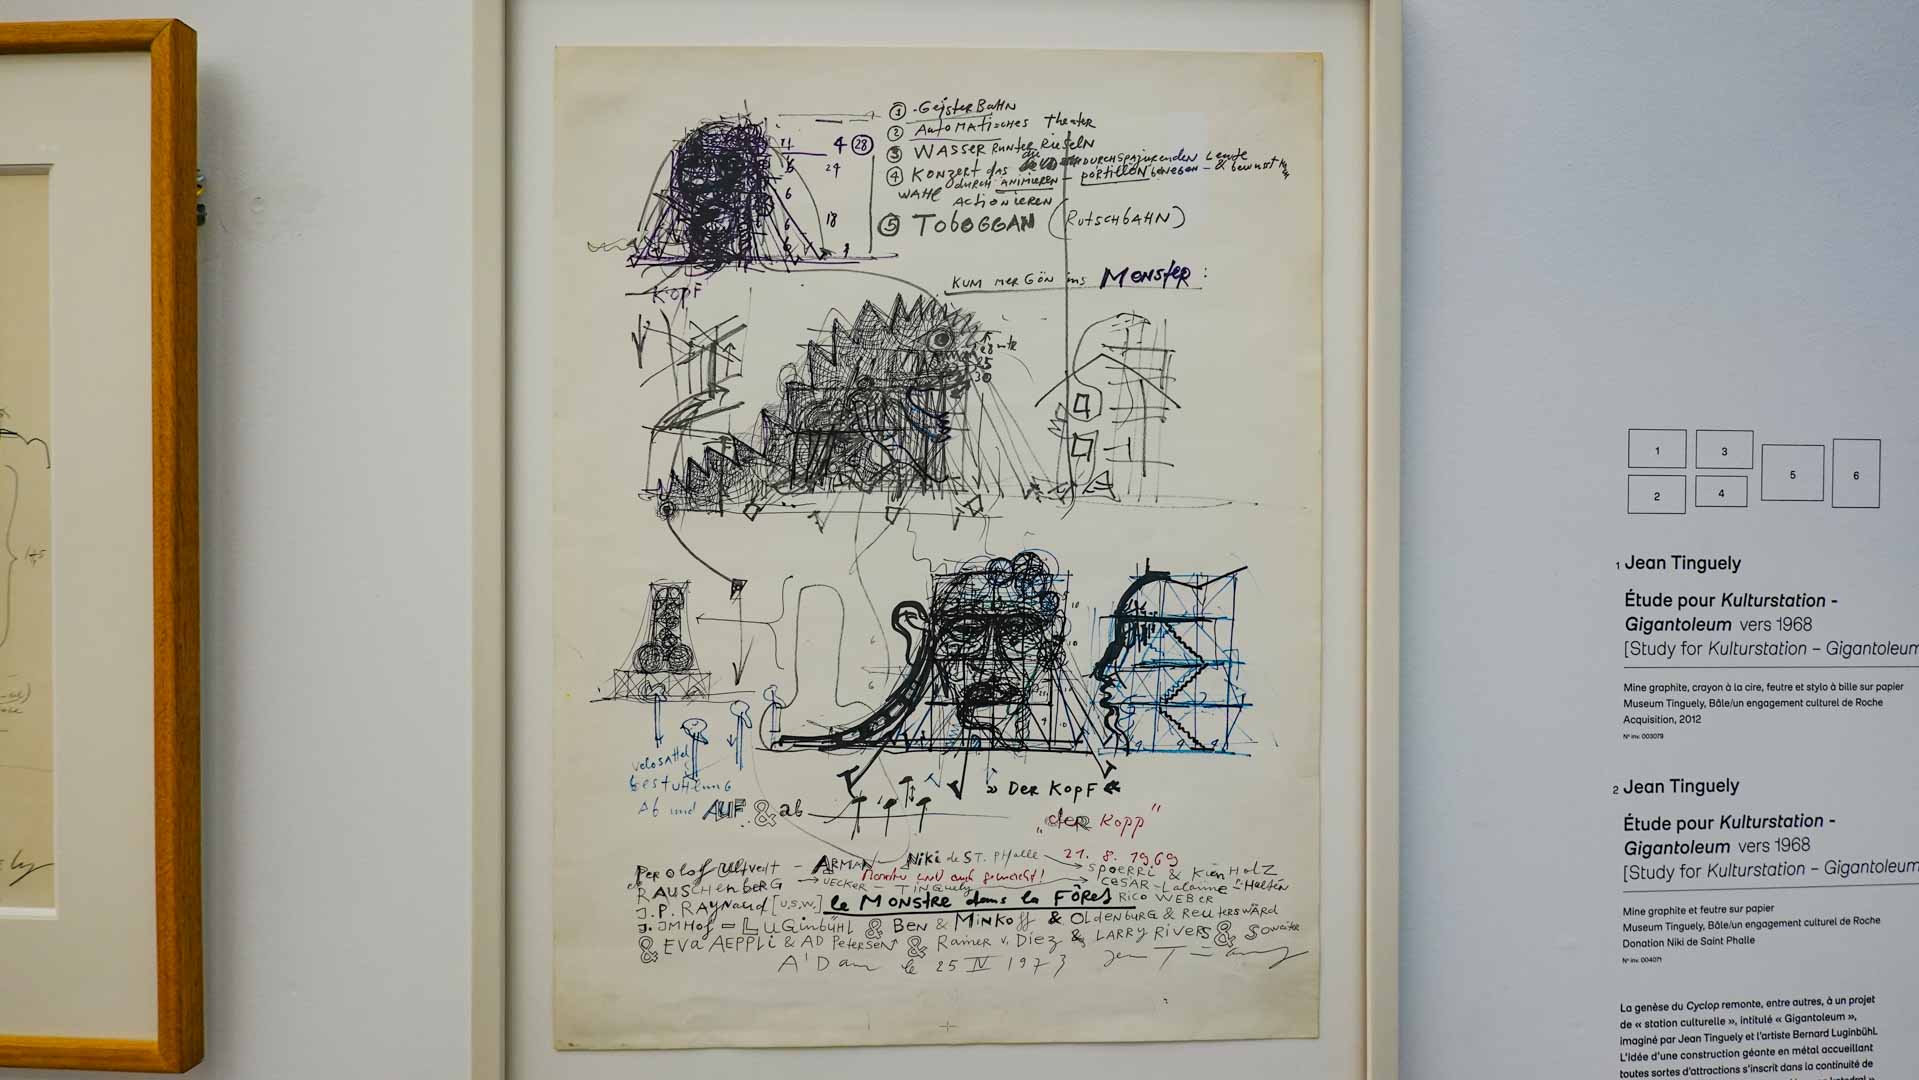 ① GeisterBahn
② Automatisches Theater
③ WASSER runter Rieseln
④ Konzert das die DURCHSPAZIERENDEN Leute
WAHL durch ANIMIEREN – PORTILLON bewegen – & bewusst
ACTIONIEREN
⑤ TOBOGGAN (RutschbAHN)
4 ㉘
24
6
6
18
6
KOPF
KUM mer GÖN ins MONSTER :
25
30
velosattel
bestuhlung
Ab und AUF & ab
" Der KopF "
„der Kopp"
21. 8. 1969
Per olof Ultvedt – ARMAN – Niki de ST. PHalle
Spoerri & KienHolz
RAUSCHENBERG → UECKER – TINGuely
CESAR – Lalanne – Hultén
J.P. RAYNAUD [u.s.w.] le MONSTRE dans la FÔReS RICO WEBER
J. IMHof – LUGinbühl & BEN & MINKOff & OLDENBURG & Reuterswärd
& EVA AEPPLI & AD Petersen & Rainer v. Diez & LARRY RIVERS & Soweiter
A'Dam le 25 IV 1973 Jean Tinguely
1
3
5
6
2
4
1 Jean Tinguely
Étude pour Kulturstation -
Gigantoleum vers 1968
[Study for Kulturstation – Gigantoleum
Mine graphite, crayon à la cire, feutre et stylo à bille sur papier
Museum Tinguely, Bâle/un engagement culturel de Roche
Acquisition, 2012
N° inv. 003079
2 Jean Tinguely
Étude pour Kulturstation -
Gigantoleum vers 1968
[Study for Kulturstation – Gigantoleum
Mine graphite et feutre sur papier
Museum Tinguely, Bâle/un engagement culturel de Roche
Donation Niki de Saint Phalle
N° inv. 004071
La genèse du Cyclop remonte, entre autres, à un projet
de « station culturelle », intitulé « Gigantoleum »,
imaginé par Jean Tinguely et l'artiste Bernard Luginbühl.
L'idée d'une construction géante en métal accueillant
toutes sortes d'attractions s'inscrit dans la continuité de